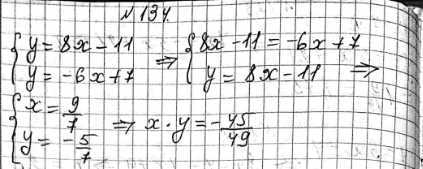 №134.
{ y = 8x - 11 ⇒ { 8x - 11 = -6x + 7
{ y = -6x + 7 { y = 8x - 11 ⇒
{ x = 9/7
{ y = -5/7 ⇒ x · y = -45/49